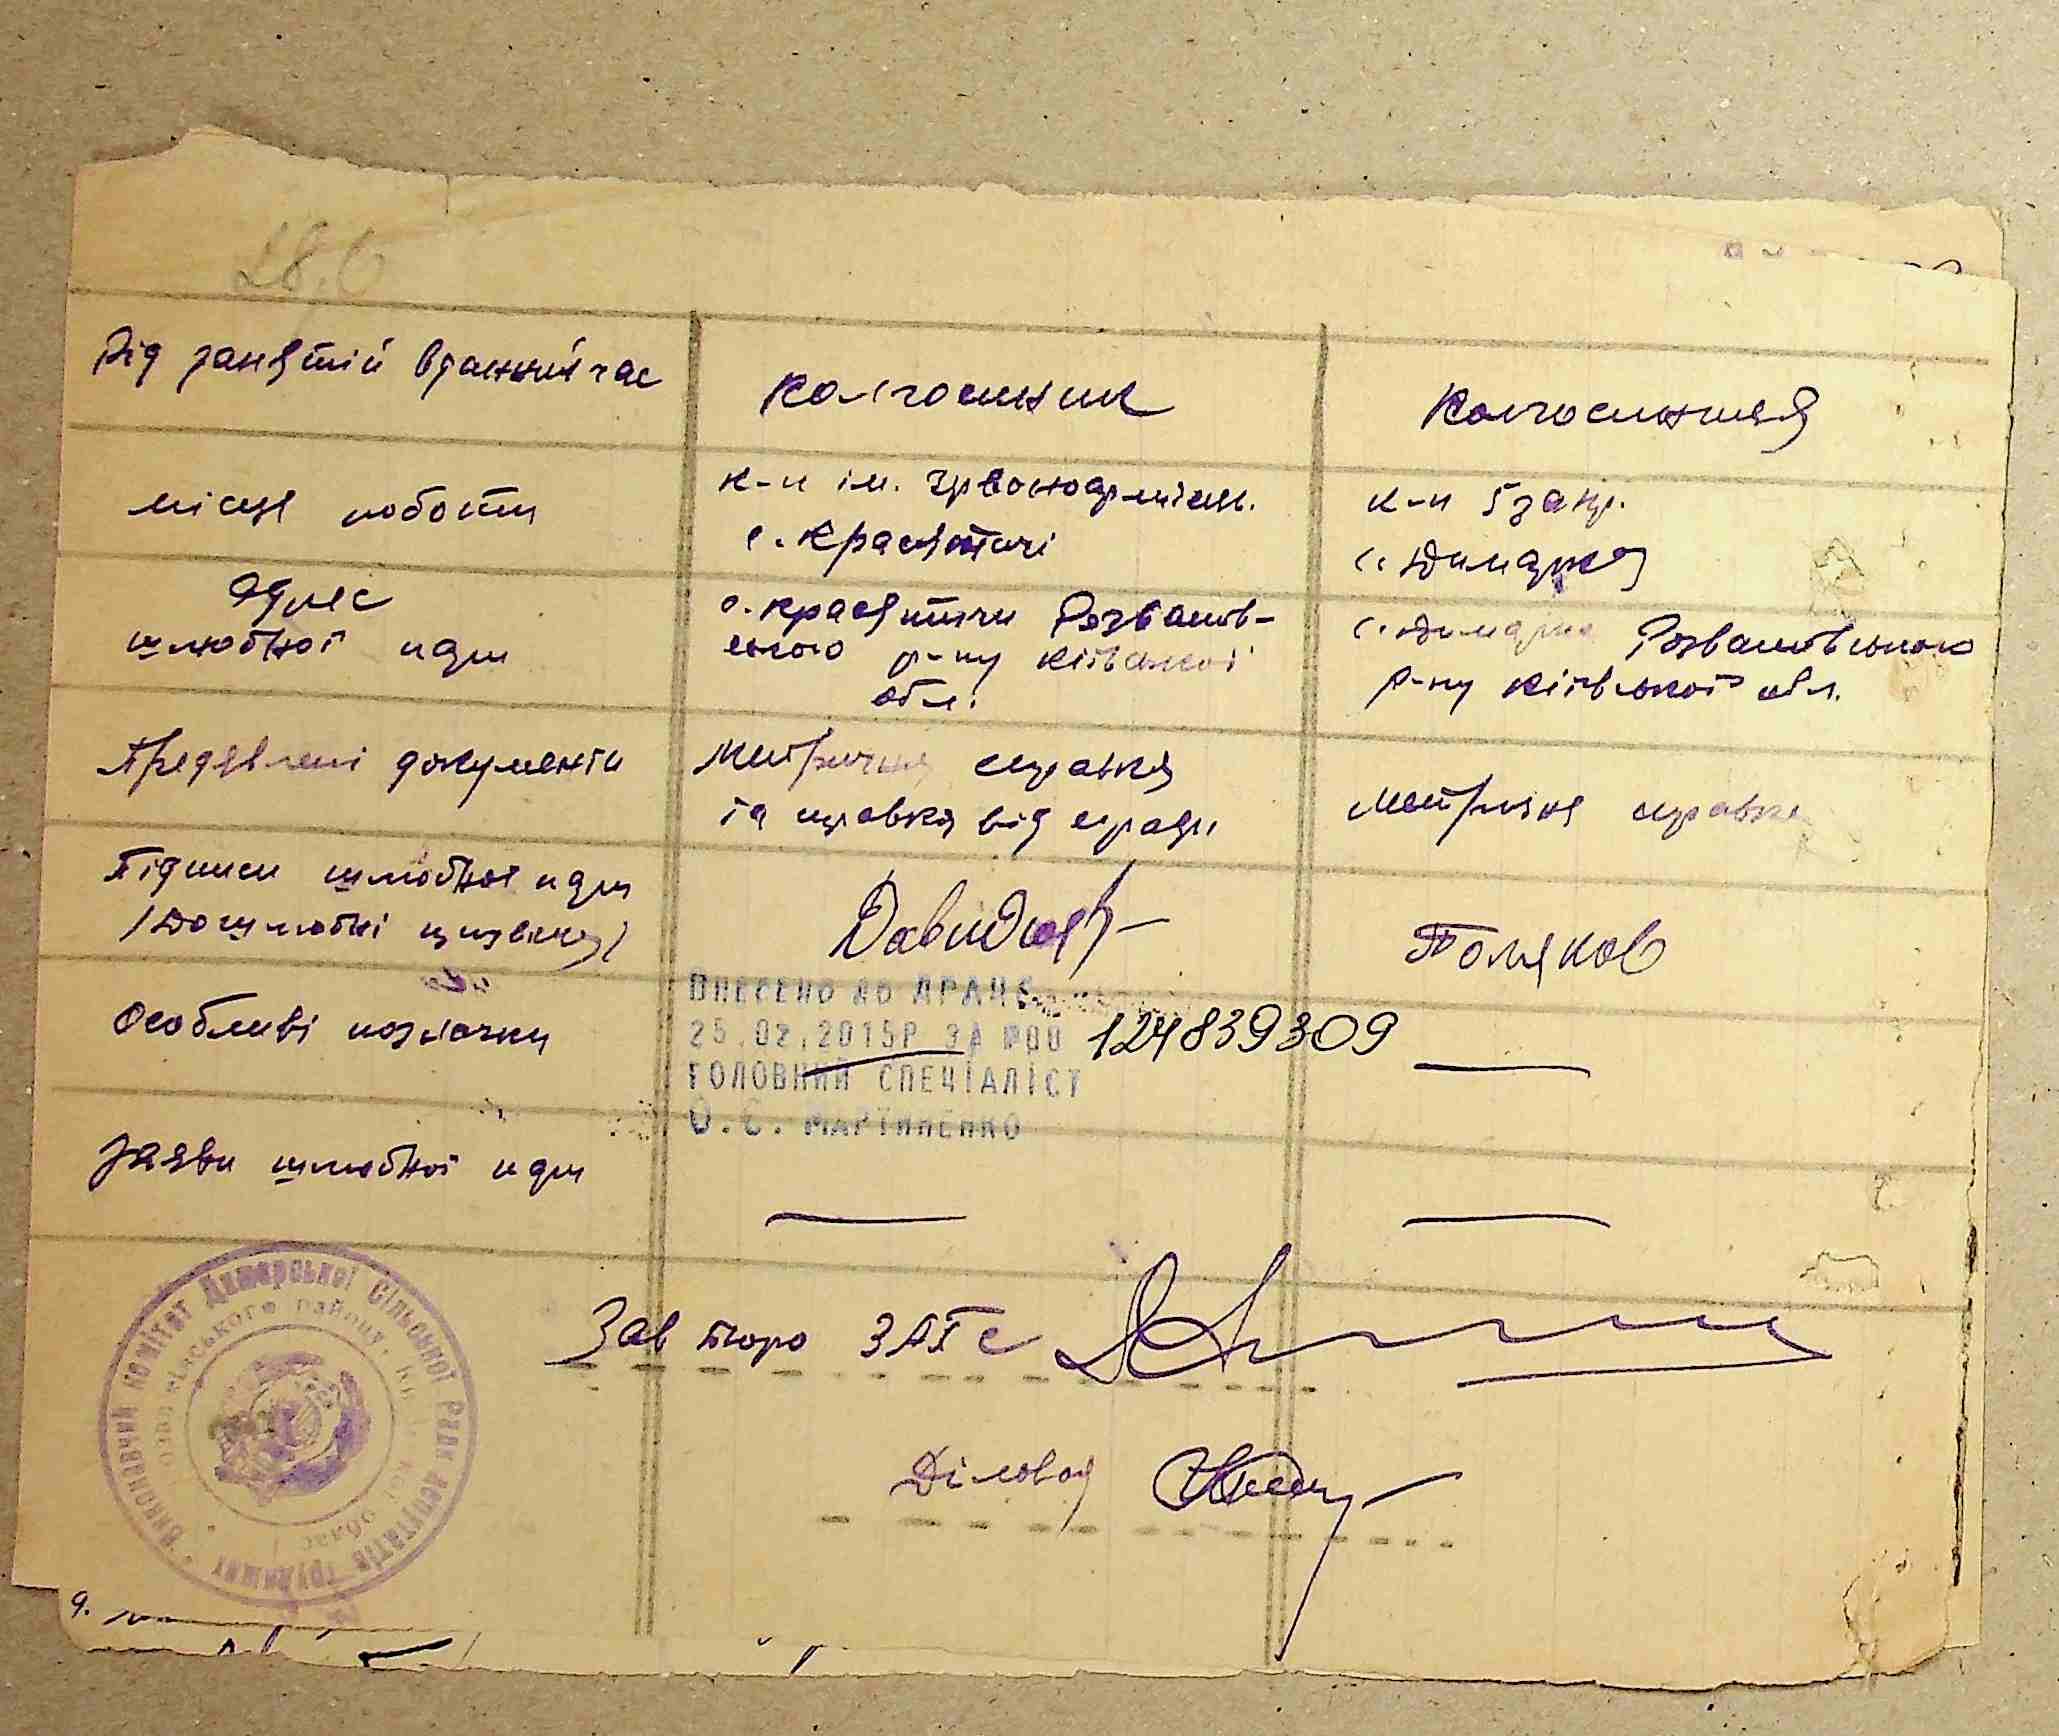 28.6
Рід занятій вданний час
колгоспник
Колгоспниця
місце роботи
к-п ім. Червоноармієць.
с. Красятичі
к-п 5 занр.
с. Димарка
Адрес
шлюбної пари
с. Красятичи Розважів-
ського р-ну Київської
обл.
с. Димарка Розважівського
р-ну Київської обл.
Предявлені документи
Метрична справка
та справка від с/ради
Метрична справка
Підписи шлюбної пари
/Дошлюбні прізвища/
Давидюк
Поляков
Особливі позначки
ВНЕСЕНО ДО ДРАЦС
25.02.2015Р ЗА №00 124839309
ГОЛОВНИЙ СПЕЦІАЛІСТ
О.Є. МАРТИНЕНКО
Заяви шлюбної пари
Зав бюро ЗАГС
Діловод
Виконавчий комітет Димарської сільської Ради депутатів трудящих
Розважівського району, Київської област